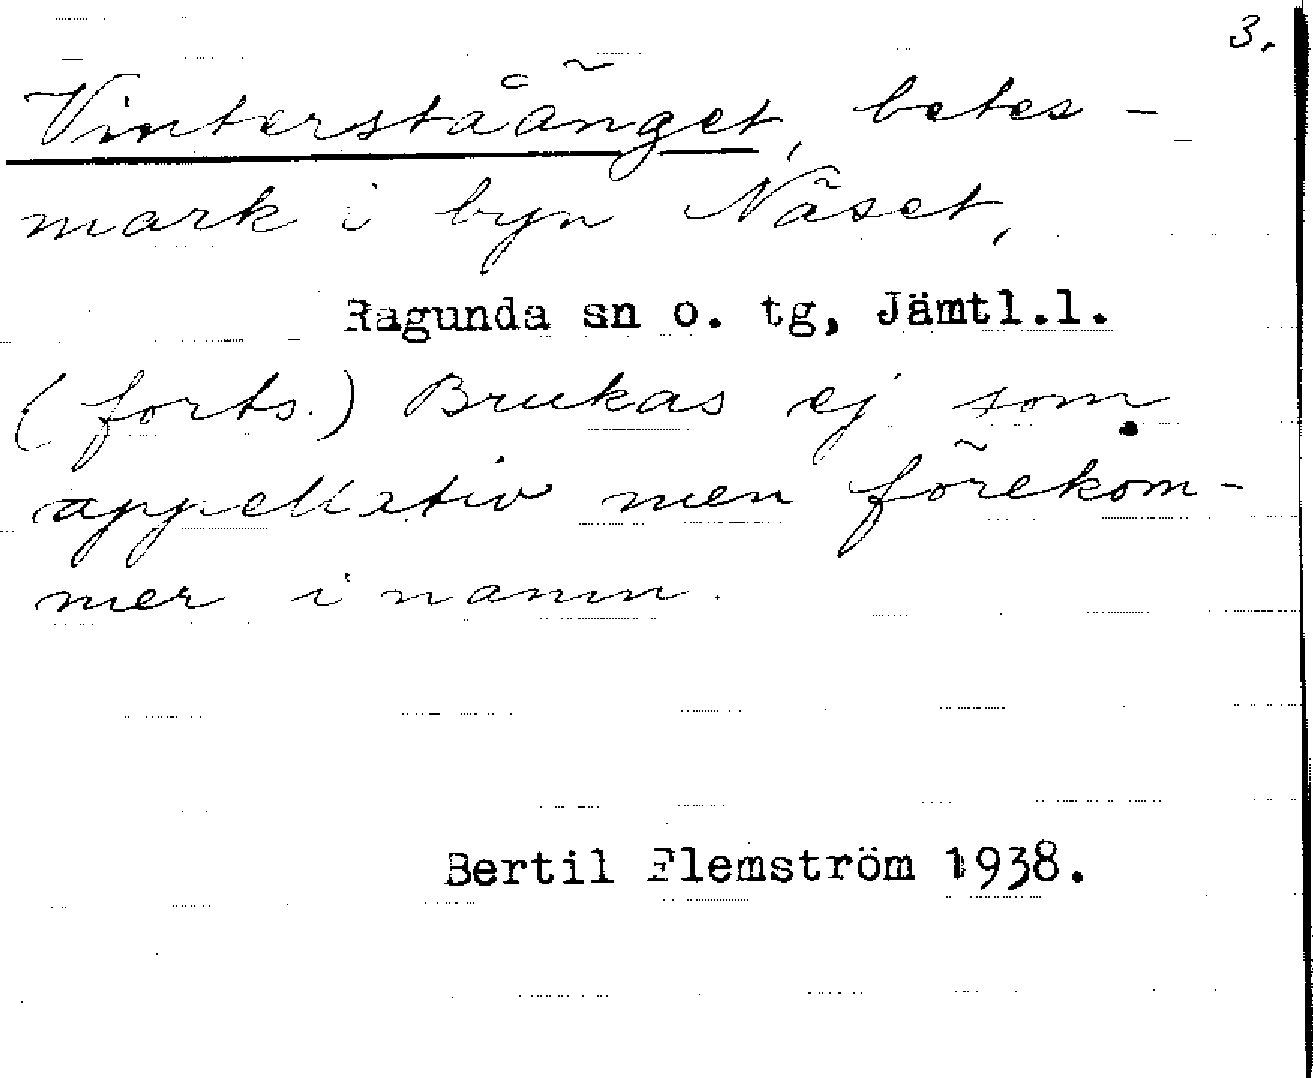 3.
Vinterståänget, betes-
mark i byn Näset,
Ragunda sn o. tg, Jämtl.l.
(forts.) Brukas ej som
appellativ men förekom-
mer i namn.
Bertil Flemström 1938.